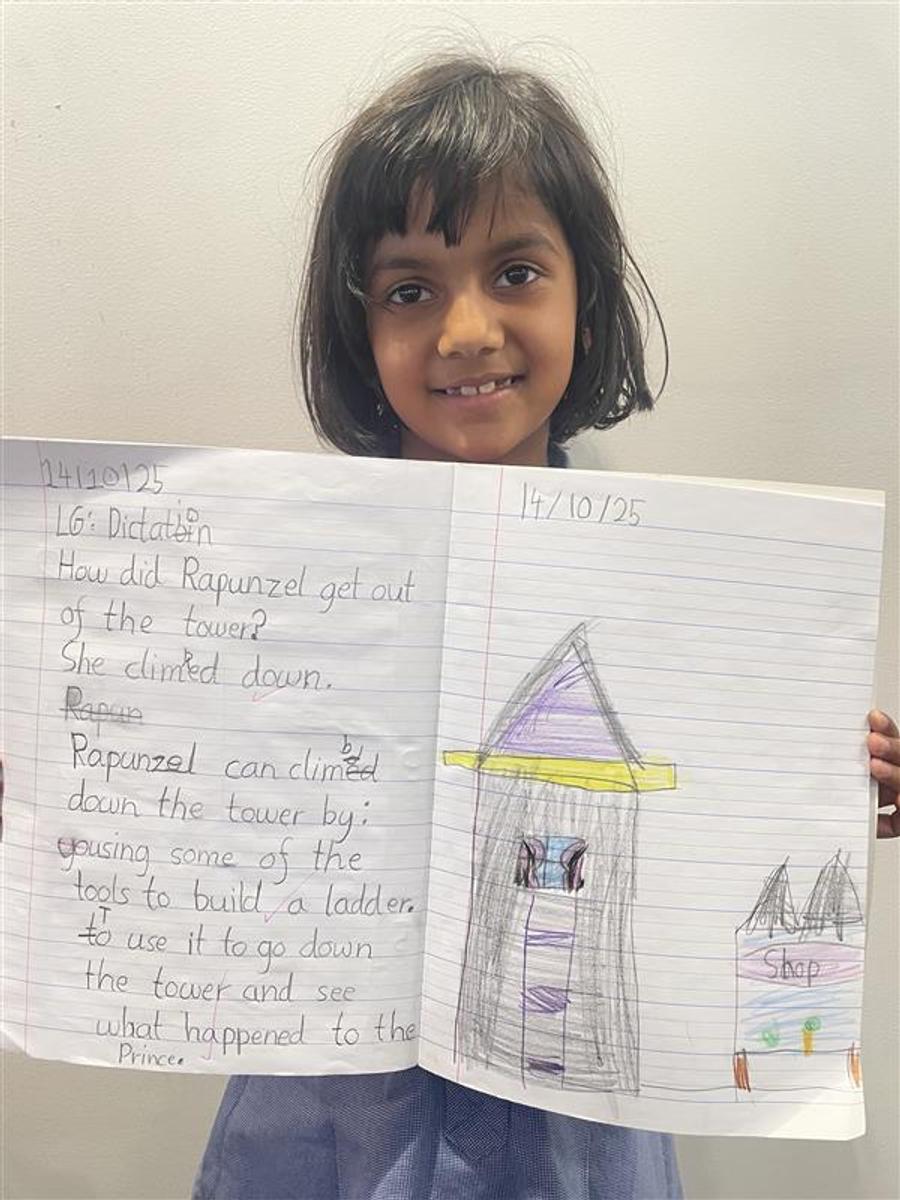 14/10/25
LG: Dictation
How did Rapunzel get out
of the tower?
She climbed down.
Rapun
Rapunzel can climb
down the tower by:
yousing some of the
tools to build a ladder.
To use it to go down
the tower and see
what happened to the
Prince.
14/10/25
Shop